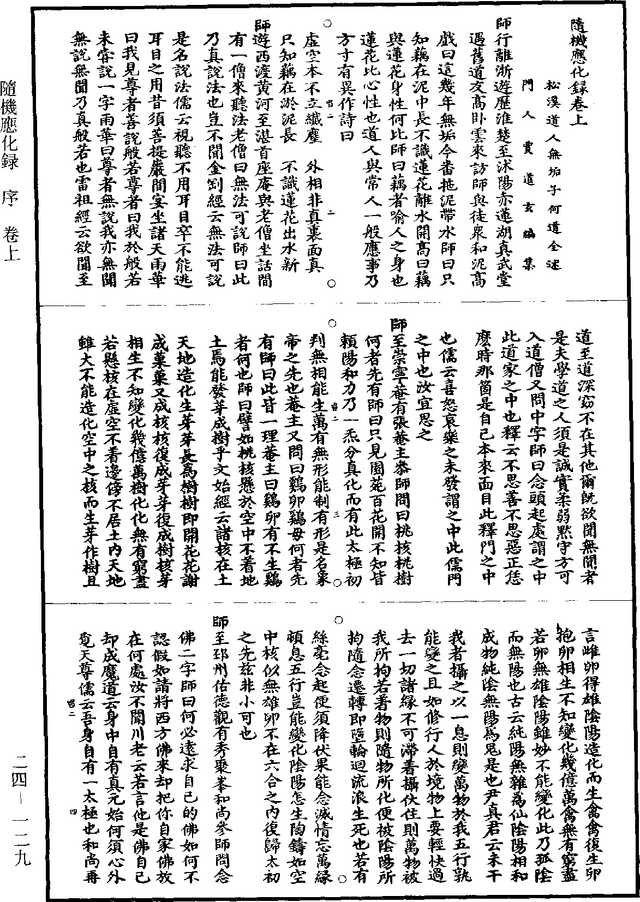 隨機應化録卷上
松溪道人無垢子何道全述
門人賈道玄編集
師行離浙遊歷淮楚至沭陽赤蓮湖真武堂
遇舊道友高卧雲來訪師與徒衆和泥高
戲曰這幾年無垢今番拖泥帶水師曰只
知藕在泥中長不識蓮花離水開高曰藕
與蓮花身性何比師曰藕者喻人之身也
蓮花比心性也道人與常人一般應事乃
方寸有異作詩曰
虛空本不立纖塵　外相非真裏面真
只知藕在淤泥長　不識蓮花出水新
師遊西渡黄河至湛首座庵與老僧坐話間
有一僧來聽法老僧曰無法可說師曰此
乃真說法也豈不聞金剛經云無法可說
是名說法儒云視聽不用耳目卒不能逃
耳目之用昔須菩提巖間宴坐諸天雨華
曰我見尊者善說般若尊者曰我於般若
未嘗說一字雨華曰尊者無說我亦無聞
無說無聞乃真般若也雷祖經云欲聞至
道至道深窈不在其他爾既欲聞無聞者
是夫學道之人須是誠實柔弱黙守方可
入道僧又問中字師曰念頭起處謂之中
此道家之中也釋云不思善不思惡正恁
麽時那箇是自己本來面目此釋門之中
也儒云喜怒哀樂之未發謂之中此儒門
之中也汝宜思之
師至崇寧庵有張庵主叅師問曰桃核桃樹
何者先有師曰只見園苑百花開不知皆
賴陽和力乃一炁分真化而有此太極初
判無相能生萬有無形能制有形是名象
帝之先也庵主又問曰鷄卵鷄母何者先
有師曰此皆一理庵主曰鷄卵有不生鷄
者何也師曰譬如桃核懸於空中不着地
土焉能發芽成樹乎文始經云諸核在土
天地造化生芽芽長爲樹樹即開花花謝
成菓菓又成核核復成芽芽復成樹核芽
相生不知變化幾億萬樹化化無有窮盡
若懸核在虛空不着邊傍不居土内天地
雖大不能造化空中之核而生芽作樹且
言雌卵得雄陰陽造化而生禽禽復生卵
抱卵相生不知變化幾億萬禽無有窮盡
若卵無雄陰陽雖妙不能變化此乃孤陰
而無陽也古云純陽無雜爲仙陰陽相和
成物純陰無陽爲鬼是也尹真君云未干
我者攝之以一息則變萬物於我五行孰
能變之且如修行人於境物上要輕快過
去一切諸緣不可滯着攝伏住則萬物被
我所拘若著物則隨物所化便被陰陽所
拘隨念遷轉即墮輪迴流浪生死也若有
絲毫念起便須降伏果能念滅情忘萬緣
頓息五行豈能變化陰陽怎生陶鑄如空
中核似無雄卵不在六合之内復歸太初
之先兹非小可也
師至邳州佑德觀有秀秉峯和尚參師問念
佛二字師曰何必遠求自己的佛如何不
認假如請將西方佛來却把你自家佛放
在何處汝不聞川老云若言他是佛自己
却成魔道云身中自有真元始何須心外
覓天尊儒云吾身自有一太極也和尚再
隨機應化録　序　卷上
二四—一二九